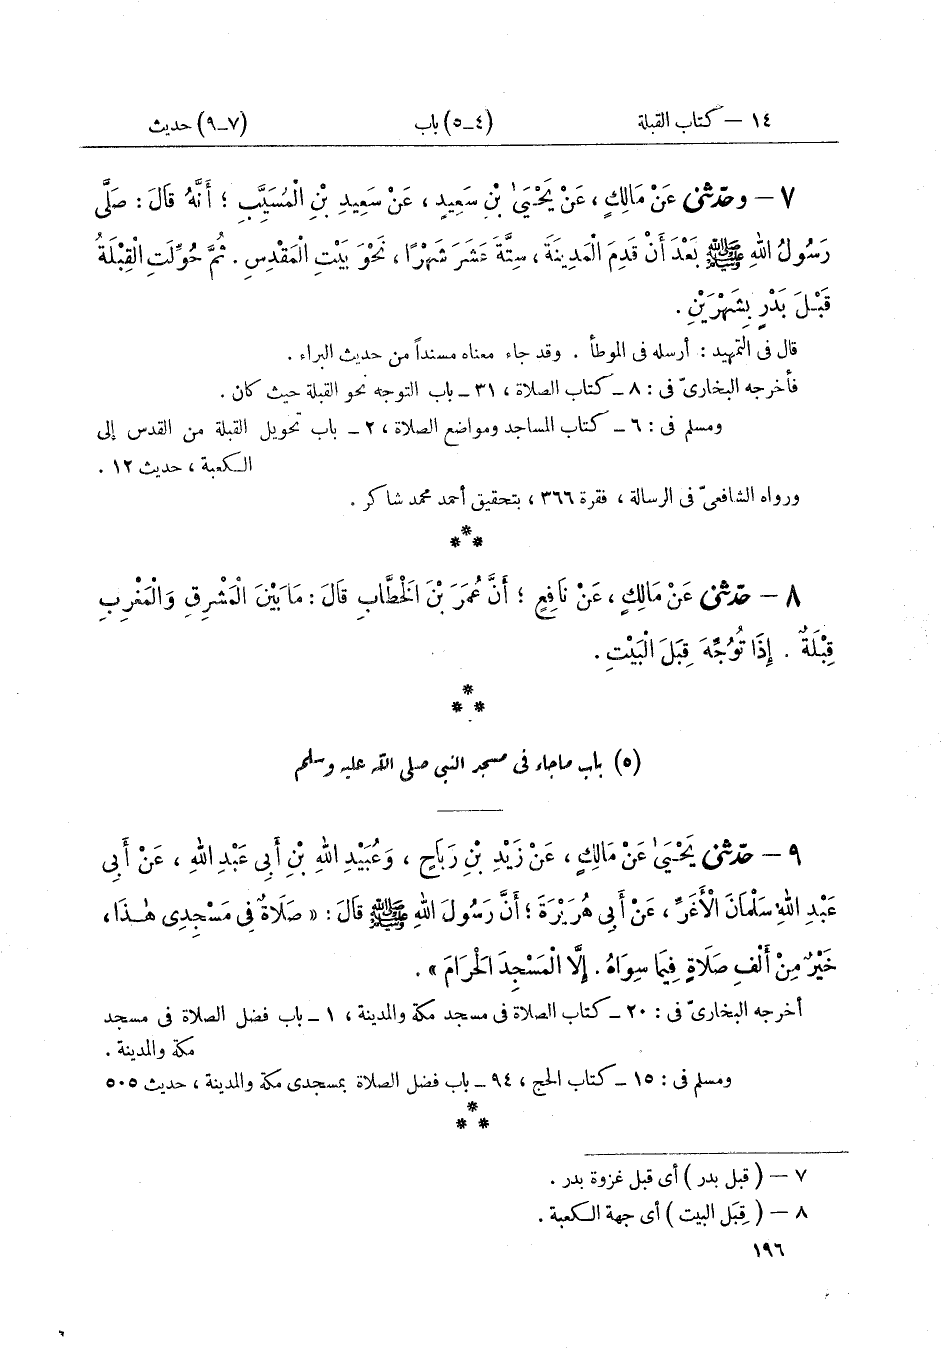 ١٤ – كتاب القبلة (٤ـ٥) باب (٧ـ٩) حديث
٧ – وحدّثنى عَنْ مَالِكٍ، عَنْ يَحْيَىٰ بْنِ سَعِيدٍ، عَنْ سَعِيدِ بْنِ الْمُسَيَّبِ ؛ أَنَّهُ قَالَ : صَلَّى
رَسُولُ اللهِ ﷺ بَعْدَ أَنْ قَدِمَ الْمَدِينَةَ، سِتَّةَ عَشَرَ شَهْرًا، نَحْوَ بَيْتِ الْمَقْدِسِ . ثُمَّ حُوِّلَتِ الْقِبْلَةُ
قَبْلَ بَدْرٍ بِشَهْرَيْنِ .
قال فى التمهيد : أرسله فى الموطأ . وقد جاء معناه مسنداً من حديث البراء .
فأخرجه البخارىّ فى : ٨ ـ كتاب الصلاة ، ٣١ ـ باب التوجه نحو القبلة حيث كان .
ومسلم فى : ٦ ـ كتاب المساجد ومواضع الصلاة ، ٢ ـ باب تحويل القبلة من القدس إلى
الكعبة ، حديث ١٢ .
ورواه الشافعىّ فى الرسالة ، فقرة ٣٦٦ ، بتحقيق أحمد محمد شاكر .
***
٨ – حدّثنى عَنْ مَالِكٍ، عَنْ نَافِعٍ ؛ أَنَّ عُمَرَ بْنَ الْخَطَّابِ قَالَ : مَا بَيْنَ الْمَشْرِقِ وَالْمَغْرِبِ
قِبْلَةٌ . إِذَا تُوُجِّهَ قِبَلَ الْبَيْتِ .
***
(٥) باب ماجاء فى مسجد النبى صلى الله عليه وسلم
٩ – حدّثنى يَحْيَىٰ عَنْ مَالِكٍ، عَنْ زَيْدِ بْنِ رَبَاحٍ ، وَعُبَيْدِ اللهِ بْنِ أَبِى عَبْدِ اللهِ ، عَنْ أَبِى
عَبْدِ اللهِ سَلْمَانَ الْأَغَرِّ، عَنْ أَبِى هُرَيْرَةَ ؛ أَنَّ رَسُولَ اللهِ ﷺ قَالَ : « صَلَاةٌ فِى مَسْجِدِى هٰذَا،
خَيْرٌ مِنْ أَلْفِ صَلَاةٍ فِيمَا سِوَاهُ . إِلَّا الْمَسْجِدَ الْحَرَامَ » .
أخرجه البخارىّ فى : ٢٠ ـ كتاب الصلاة فى مسجد مكة والمدينة ، ١ ـ باب فضل الصلاة فى مسجد
مكة والمدينة .
ومسلم فى : ١٥ ـ كتاب الحج ، ٩٤ ـ باب فضل الصلاة بمسجدى مكة والمدينة ، حديث ٥٠٥
***
٧ – ( قبل بدر ) أى قبل غزوة بدر .
٨ – ( قِبَل البيت ) أى جهة الكعبة .
١٩٦